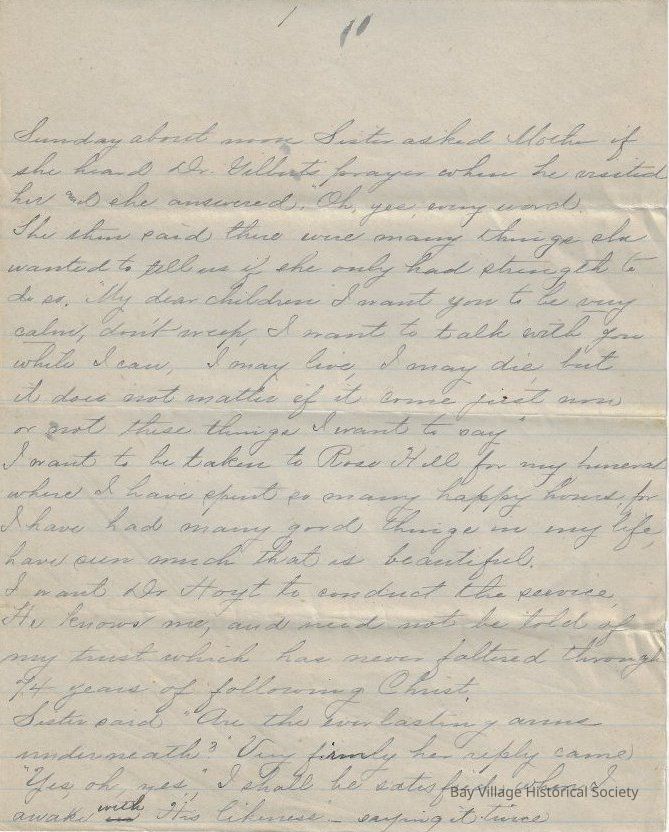 1 11
Sunday about noon Sister asked Mother if
she heard Dr. Gilberts prayer when he visited
her and she answered, "Oh, yes, every word.
She then said there were many things she
wanted to tell us if she only had strength to
do so. "My dear children I want you to be very
calm, don't weep, I want to talk with you
while I can, I may live, I may die, but
it does not matter if it come just now
or not these things I want to say"
I want to be taken to Rose Hill for my funeral
where I have spent so many happy hours, for
I have had many good things in my life,
have seen much that is beautiful.
I want Dr Hoyt to conduct the service,
He knows me, and need not be told of
my trust which has never faltered through
74 years of following Christ.
Sister said "Are the everlasting arms
underneath?" Very firmly her reply came
"Yes, oh, yes," I shall be satisfied when I
awake with His likeness" – saying it twice
Bay Village Historical Society